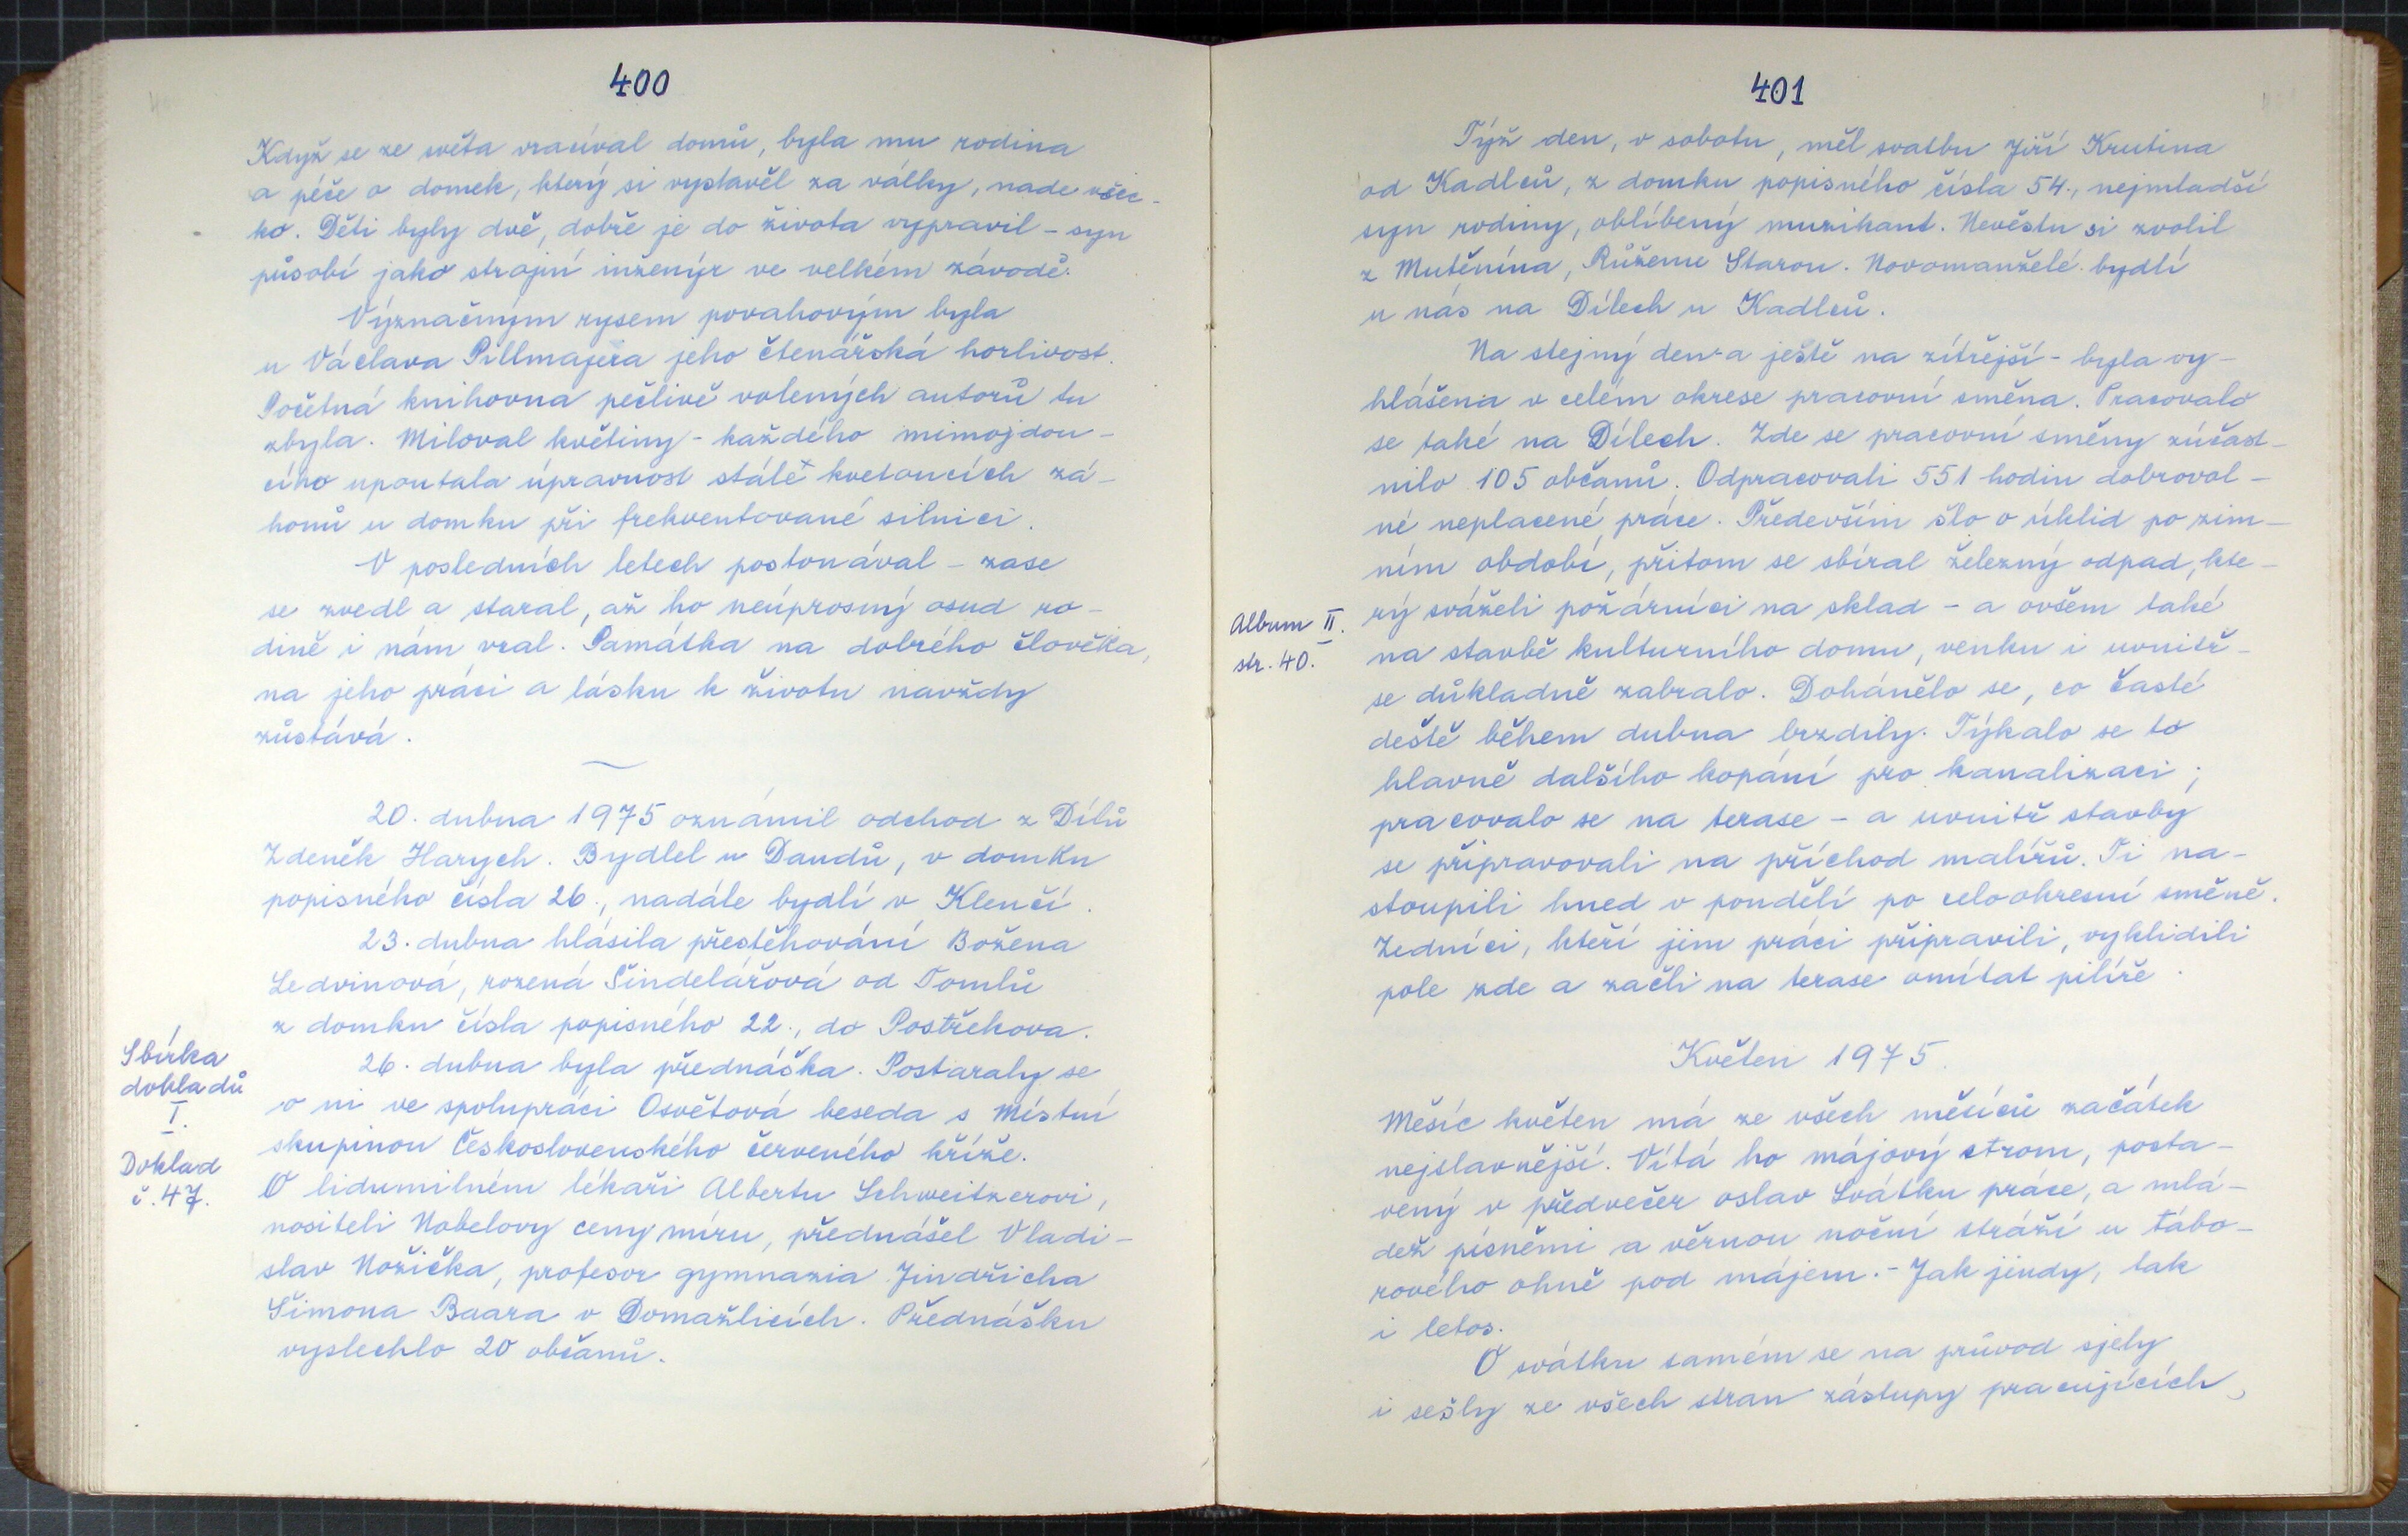 400
Když se ze světa vracíval domů, byla mu rodina
a péče o domek, který si vystavěl za války, nade všec-
ko. Děti byly dvě, dobře je do života vypravil - syn
působí jako strojní inženýr ve velkém závodě.
Význačným rysem povahovým byla
u Václava Pillmajera jeho čtenářská horlivost.
Početná knihovna pečlivě volených autorů tu
zbyla. Miloval květiny - každého mimojdou-
cího upoutala úpravnost stále kvetoucích zá-
honů u domku při frekventované silnici.
V posledních letech postonával - zase
se zvedl a staral, až ho neúprosný osud ro-
dině i nám vzal. Památka na dobrého člověka,
na jeho práci a lásku k životu navždy
zůstává.
20. dubna 1975 oznámil odchod z Dílů
Zdeněk Harych. Bydlel u Dandů, v domku
popisného čísla 26., nadále bydlí v Klenčí.
23. dubna hlásila přestěhování Božena
Ledvinová, rozená Šindelářová od Tomlů
z domku čísla popisného 22., do Postřekova.
Sbírka
dokladů
I.
Doklad
č. 47.
26. dubna byla přednáška. Postaraly se
o ni ve spolupráci Osvětová beseda s Místní
skupinou Československého červeného kříže.
O lidumilném lékaři Albertu Schweitzerovi,
nositeli Nobelovy ceny míru, přednášel Vladi-
slav Nožička, profesor gymnazia Jindřicha
Šimona Baara v Domažlicích. Přednášku
vyslechlo 20 občanů.
401
Týž den, v sobotu, měl svatbu Jiří Krutina
od Kadlců, z domku popisného čísla 54., nejmladší
syn rodiny, oblíbený muzikant. Nevěstu si zvolil
z Mutěnína, Růženu Starou. Novomanželé bydlí
u nás na Dílech u Kadlců.
Na stejný den - a ještě na zítřejší - byla vy-
hlášena v celém okrese pracovní směna. Pracovalo
se také na Dílech. Zde se pracovní směny zúčast-
nilo 105 občanů. Odpracovali 551 hodin dobrovol-
né neplacené práce. Především šlo o úklid po zim-
ním období, přitom se sbíral železný odpad, kte-
rý sváželi požárníci na sklad - a ovšem také
Album II.
str. 40.
na stavbě kulturního domu, venku i uvnitř -
se důkladně zabralo. Dohánělo se, co časté
deště během dubna brzdily. Týkalo se to
hlavně dalšího kopání pro kanalizaci;
pracovalo se na terase - a uvnitř stavby
se připravovali na příchod malířů. Ti na-
stoupili hned v pondělí po celookresní směně.
Zedníci, kteří jim práci připravili, vyklidili
pole zde a začli na terase omítat pilíře.
Květen 1975.
Měsíc květen má ze všech měsíců začátek
nejslavnější. Vítá ho májový strom, posta-
vený v předvečer oslav Svátku práce, a mlá-
dež písněmi a věrnou noční stráží u tábo-
rového ohně pod májem. - Jak jindy, tak
i letos.
O svátku samém se na průvod sjely
i sešly ze všech stran zástupy pracujících,